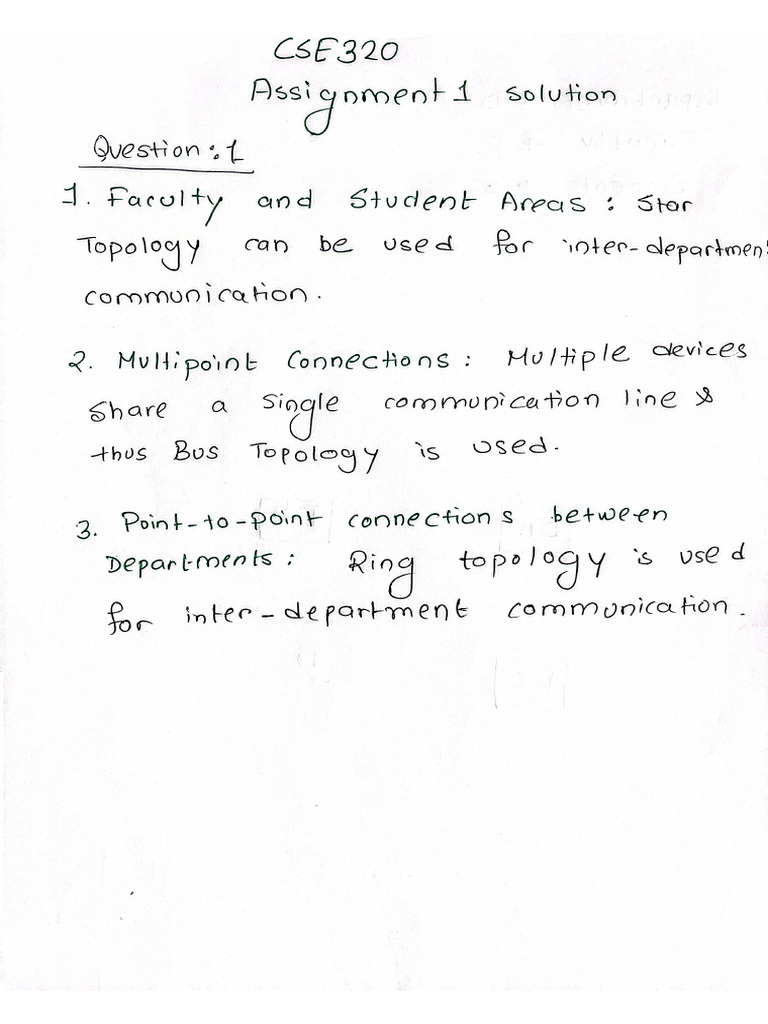 CSE320
Assignment 1 solution
Question: 1
1. Faculty and Student Areas : Star
Topology can be used for inter-department
communication.
2. Multipoint Connections : Multiple devices
share a single communication line &
thus Bus Topology is used.
3. Point-to-point connections between
Departments : Ring topology is used
for inter-department communication.